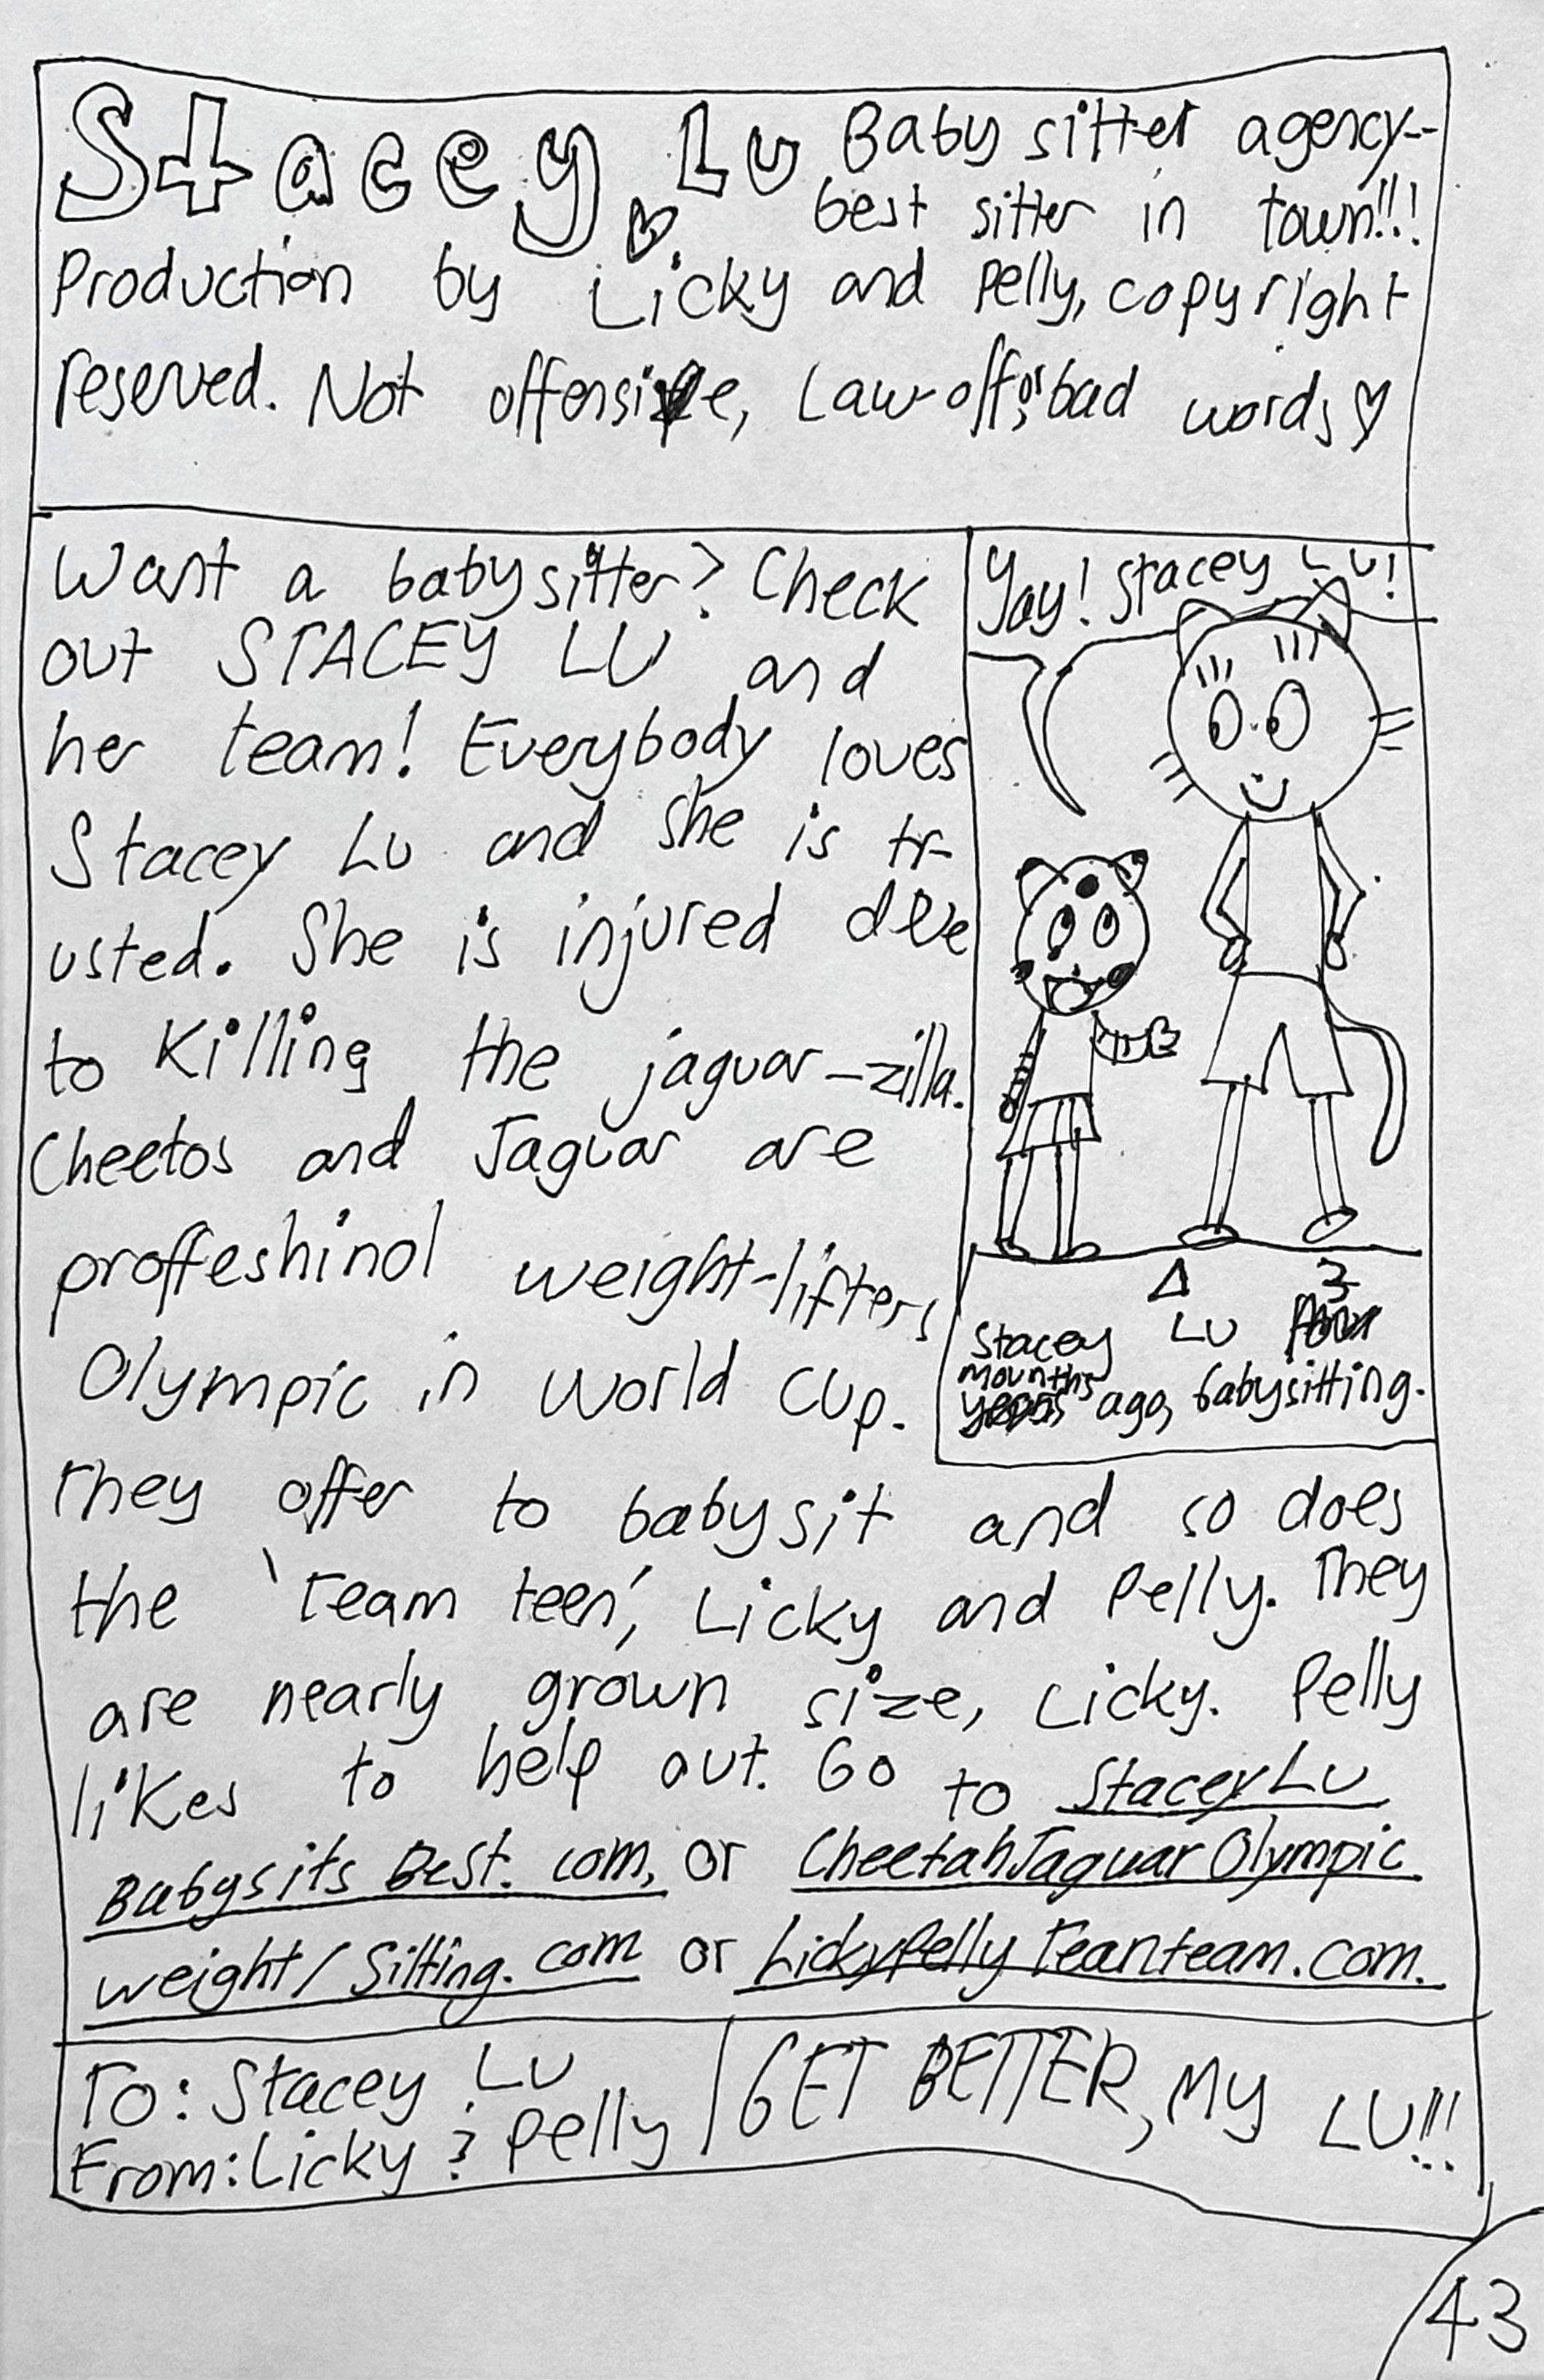 Stacey Lu Babysitter agency--
best sitter in town!!!
Production by Licky and Pelly, copyright
reserved. Not offensive, Law-off, or bad words ♡
Want a babysitter? Check
out STACEY LU and
her team! Everybody loves
Stacey Lu and she is tr-
usted. She is injured due
to killing the jaguar-zilla.
Cheetos and Jaguar are
proffeshinol weight-lifters,
Olympic in world cup.
They offer to babysit and so does
the 'Team teen', Licky and Pelly. They
are nearly grown size, Licky. Pelly
likes to help out. Go to StaceyLu
Babysits Best.com, or CheetahJaguarOlympic
weight/Sitting.com or LickyPelly Teanteam.com.
Yay! Stacey Lu!
3
Stacey LU
mounths
ago, babysitting.
To: Stacey LU
From: Licky & Pelly
GET BETTER, My LU!!!
43